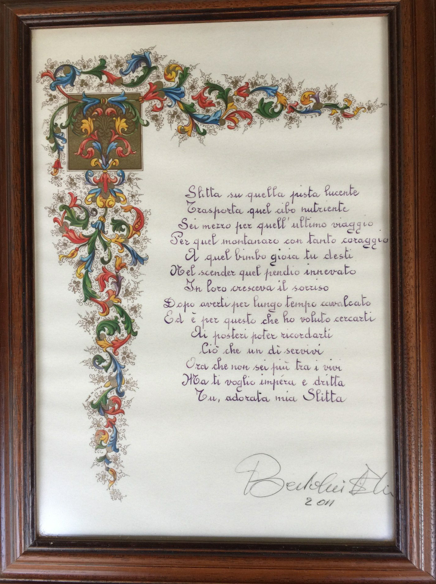 Slitta su quella pista lucente
Trasporta quel cibo nutriente
Sei mezzo per quell'ultimo viaggio
Per quel montanaro con tanto coraggio
A quel bimbo gioia tu desti
Nel scender quel pendio innevato
In loro cresceva il sorriso
Dopo averti per lungo tempo cavalcato
Ed è per questo che ho voluto cercarti
Ai posteri poter ricordarti
Ciò che un dì servivi
Ora che non sei più tra i vivi
Ma ti voglio impera e dritta
Tu, adorata mia Slitta
2011